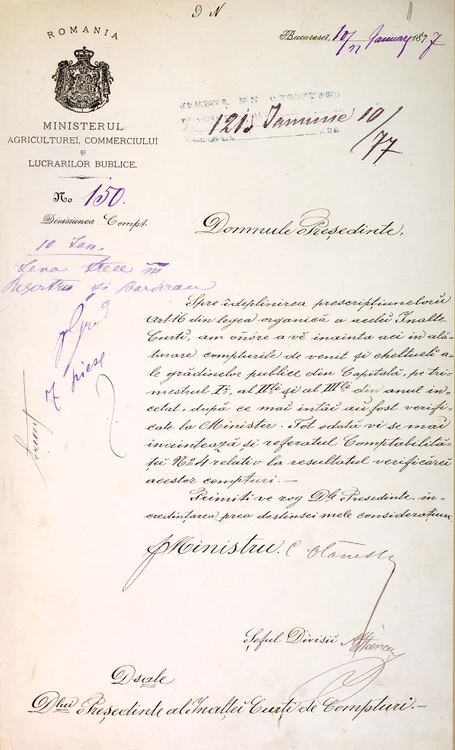 D N
ROMANIA
MINISTERUL
AGRICULTUREI, COMMERCIULUI
ȘI
LUCRARILOR BUBLICE.
No 150.
Divisiunea Compt.
Bucuresci, 10/22 January 1877
1215 Ianuarie 10/77
10 Ian.
Domnule Președinte,
Spre îdeplinirea prescripțiunelorŭ
art. 16 din legea organică a acelei Inalte
Curti, am onóre a vĕ inainta aci in ală-
turare compturile de venit și cheltueli a-
le grădinelor publice din Capitală, pe tri-
mestrul Iĭ, al IIlé și al IIIlé din anul in-
cetat, după ce mai intâi au fost verifi-
cate la Minister. Tot odată vi se mai
inaintează și referatul Comptabilită-
ței No 4 relativ la resultatul verificărei
acestor compturi. —
Primiti ve rog Dle Președinte, in-
credințarea prea destinsei mele considerațiuni
p Ministru,
Șeful Divisii
Dsale
Dlui Președinte al Inaltei Curti de Compturi. —